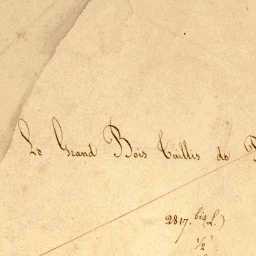 Le Grand Bois Taillis de
2817. bis (L.)
1/2